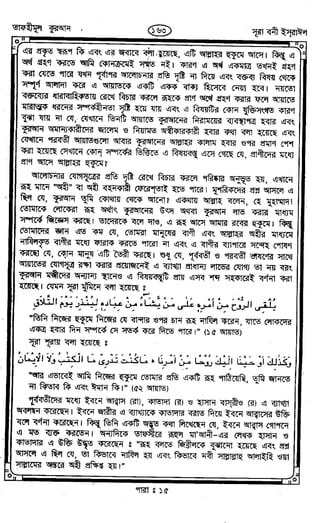 তাফহীমুল কুরআন
১৬৩
সূরা বনী ইসরাঈল
এর প্রকৃত স্বরূপ কি এবং এর জবাবে বলা হয়েছে, এটি আল্লাহর হুকুমে আসে। কিন্তু এ
অর্থ গ্রহণ করতে আমি কোনক্রমেই সম্মত নই। কারণ এ অর্থ একমাত্র তখনই গ্রহণ
করা যেতে পারে যখন পূর্বাপর আলোচনার প্রতি দৃষ্টি না দিয়ে এবং বক্তব্য বিষয় থেকে
সম্পূর্ণ আলাদা করে এ আয়াতকে একটি একক বাক্য হিসেবে নেয়া হবে। নয়তো
বক্তব্যের ধারাবাহিকতায় রেখে বিচার করলে রূহকে প্রাণ অর্থে গ্রহণ করার ফলে আয়াতে
মারাত্মক ধরনের সম্পর্কহীনতা সৃষ্টি হয়ে যায় এবং এ বিষয়টির কোন যুক্তিসংগত কারণ
বুঝা যায় না যে, যেখানে তিনটি আয়াতে কুরআনের নিরাময়ের ব্যবস্থাপত্র হবার এবং
কুরআন অমান্যকারীদের জালেম ও নিয়ামত অস্বীকারকারী হবার কথা বলা হয়েছে এবং
যেখানে পরবর্তী আয়াতগুলো আবার কুরআনের আল্লাহর কালাম হবার ওপর প্রমাণ পেশ
করা হয়েছে সেখানে কোন্ সম্পর্কের ভিত্তিতে এ বিষয়বস্তু এসে গেছে যে, প্রাণীদের মধ্যে
প্রাণ আসে আল্লাহর হুকুমে?
আলোচনার যোগসূত্রের প্রতি দৃষ্টি রেখে বিচার করলে পরিষ্কার অনুভূত হয়, এখানে
রূহ মানে "অহী" বা অহী বহনকারী ফেরেশতাই হতে পারে। মুশরিকদের প্রশ্ন আসলে এ
ছিল যে, কুরআন তুমি কোথায় থেকে আনো? একথায় আল্লাহ বলেন, হে মুহাম্মাদ!
তোমাকে লোকেরা রূহ অর্থাৎ কুরআনের উৎস অথবা কুরআন লাভ করার মাধ্যম
সম্পর্কে জিজ্ঞেস করছে। তাদেরকে বলে দাও, এ রূহ আসে আমার রবের হুকুমে। কিন্তু
তোমাদের জ্ঞান এত কম যে, তোমরা মানুষের বাণী এবং আল্লাহর অহীর মাধ্যমে
নাযিলকৃত বাণীর মধ্যে ফারাক করতে পারো না এবং এ বাণীর ব্যাপারে সন্দেহ পোষণ
করছো যে, কোন মানুষ এটি তৈরী করছে। শুধু যে, পূর্ববর্তী ও পরবর্তী ভাষণের সাথে
আয়াতের যোগসূত্র রক্ষা করার প্রয়োজনেই এ ব্যাখ্যা প্রাধান্য লাভের যোগ্য তা নয় বরং
কুরআন মজীদের অন্যান্য স্থানেও এ বিষয়বস্তুটি প্রায় এসব শব্দ সহকারেই বর্ণনা করা
হয়েছে। যেমন সূরা মুমিনে বলা হয়েছে :
يُلْقِى الرُّوحَ مِنْ اَمْرِهٖ عَلٰى مَنْ يَّشَآءُ مِنْ عِبَادِهٖ لِيُنْذِرَ يَوْمَ التَّلَاقِ
"তিনি নিজের হুকুমে নিজের যে বান্দার ওপর চান রূহ নাযিল করেন, যাতে লোকদের
একত্র হবার দিন সম্পর্কে সে সতর্ক করে দিতে পারে।" (১৫ আয়াত)
সূরা শূরায় বলা হয়েছে :
وَكَذٰلِكَ اَوْحَيْنَآ اِلَيْكَ رُوْحًا مِّنْ اَمْرِنَا ۚ مَا كُنْتَ تَدْرِىْ مَا الْكِتٰبُ وَلَا الْاِيْمَانُ
"আর এভাবেই আমি নিজের হুকুমে তোমার প্রতি একটি রূহ পাঠিয়েছি, তুমি জানতে
না কিতাব কি এবং ঈমান কি।" (৫২ আয়াত)
পূর্ববর্তীদের মধ্যে ইবনে আব্বাস (রা), কাতাদা (র) ও হাসান বাসরীও (র) এ ব্যাখ্যা
অবলম্বন করেছেন। ইবনে জারীর এ ব্যাখ্যাকে কাতাদার বরাত দিয়ে ইবনে আব্বাসের উক্তি
বলে বর্ণনা করেছেন। কিন্তু তিনি একটি অদ্ভুত কথা লিখেছেন যে, ইবনে আব্বাস গোপনে
এ মত ব্যক্ত করতেন। অন্যদিকে তাফসীরে রূহুল মা'আনী-এর লেখক হাসান ও
কাতাদার এ উক্তি উদ্ধৃত করেছেন : "রূহ বলতে জিব্রীলকে বুঝানো হয়েছে এবং প্রশ্ন
আসলে এ ছিল যে, তা কিভাবে নাযিল হয় এবং কিভাবে নবী সাল্লাল্লাহু আলাইহি ওয়া
সাল্লামের অন্তরে অহী প্রক্ষিপ্ত হয়।"
পারা : ১৫